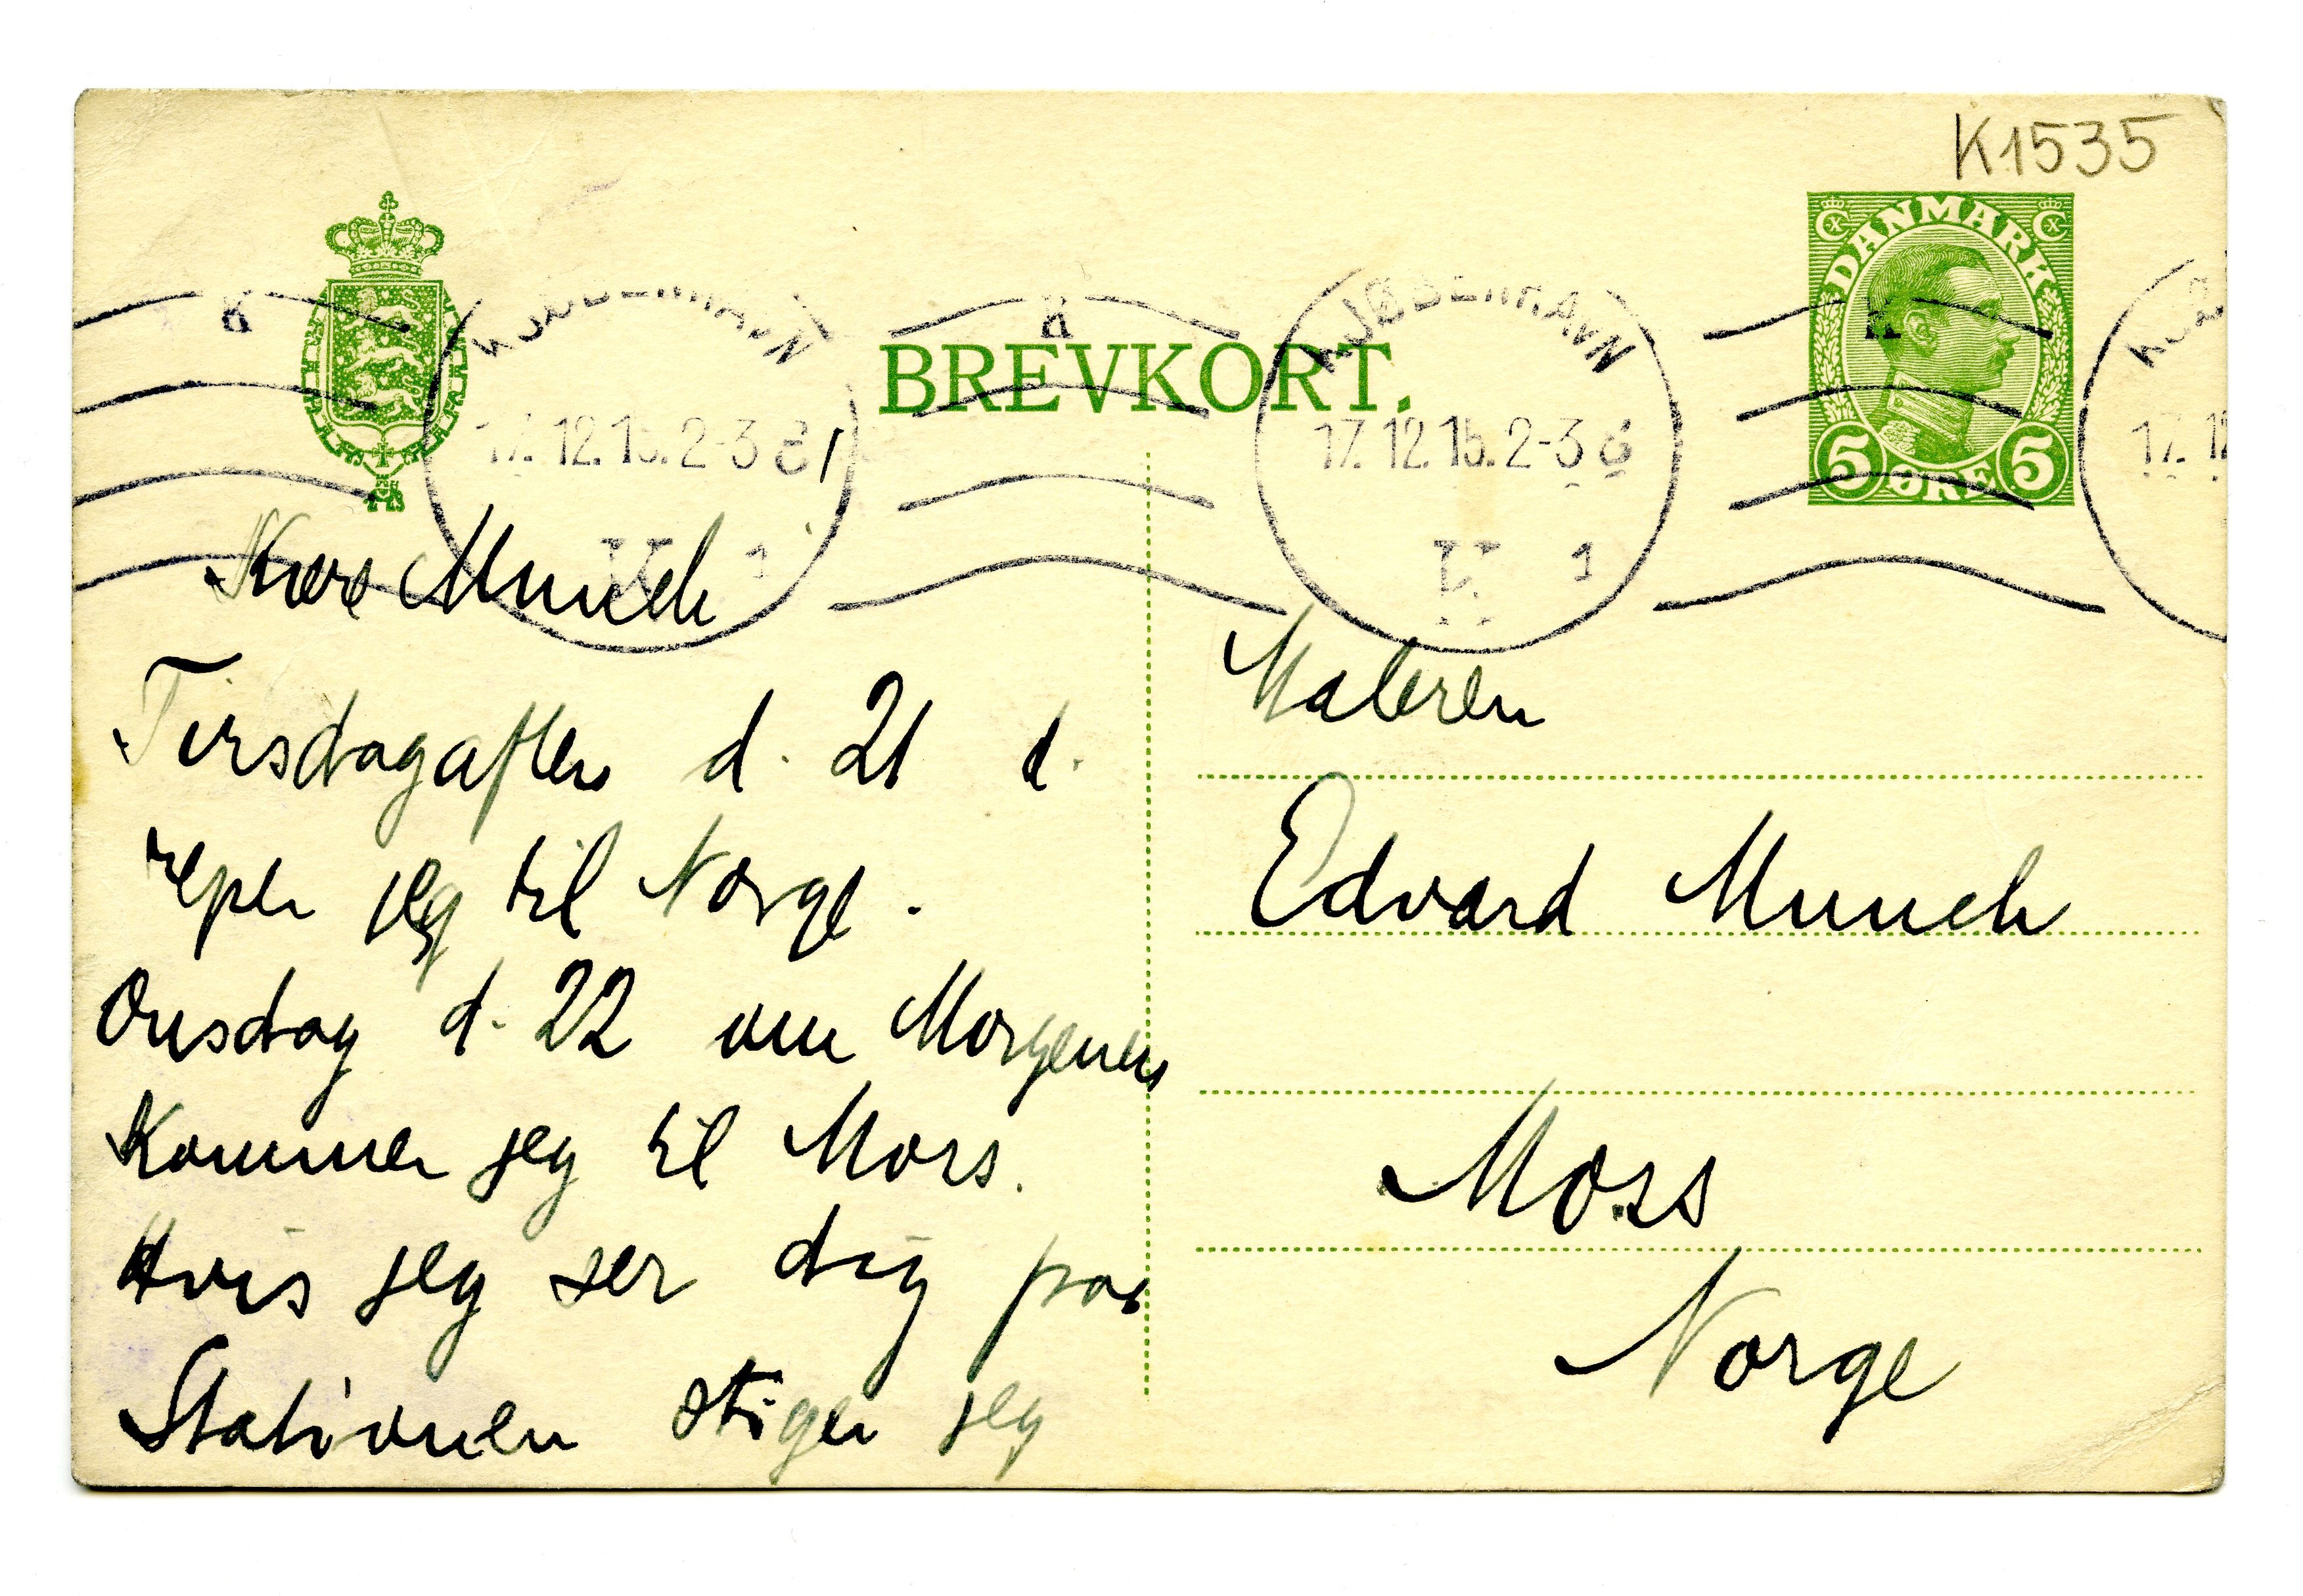 K1535
DANMARK
5 ØRE 5
BREVKORT.
KJØBENHAVN
17.12.15. 2-3
K 1
KJØBENHAVN
17.12.15. 2-3 6
K 1
17. 12
Kære Munch
Tirsdagaften d. 21 d.
rejser jeg til Norge.
Onsdag d. 22 om Morgenen
Kommer jeg til Moss.
Hvis jeg ser dig paa
Stationen stiger jeg
Maleren
Edvard Munch
Moss
Norge